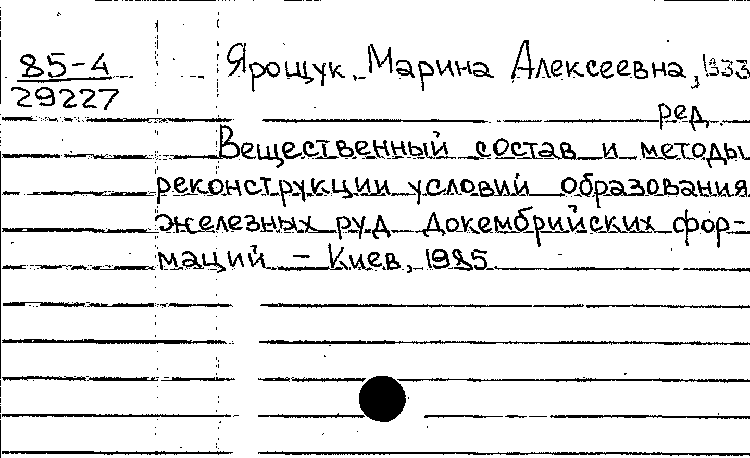 85-4
29227
Ярощук, Марина Алексеевна, 1933
ред.
Вещественный состав и методы
реконструкции условий образования
железных руд докембрийских фор-
маций – Киев, 1985